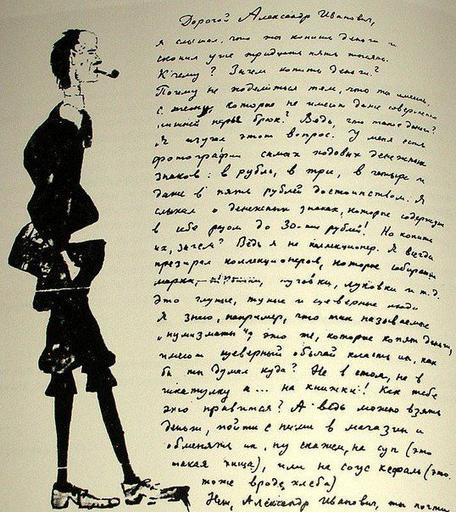 Дорогой Александр Иванович,
я слышал, что ты копишь деньги и
скопил уже тридцать пять тысяч.
К чему? Зачем копить деньги?
Почему не поделиться тем, что ты имеешь,
с теми, которые не имеют даже совершенно
лишней пары брюк? Ведь, что такое деньги?
Я изучал этот вопрос. У меня есть
фотографии самых ходовых денежных
знаков: в рубль, в три, в четыре и
даже в пять рублей достоинством. Я
слыхал о денежных знаках, которые содержат
в себе разом до 30-ти рублей! Но копить
их, зачем? Ведь я не коллекционер. Я всегда
презирал коллекционеров, которые собирают
марки, пёрышки, пуговки, луковки и т.д.
Это глупые, тупые и суеверные люди
Я знаю, например, что так называемые
"нумизматы" это те, которые копят деньги,
имеют суеверный обычай класть их, как
бы ты думал куда? Не в стол, не в
шкатулку а... на книжки! Как тебе
это нравится? А ведь можно взять
деньги, пойти с ними в магазин и
обменять их, ну скажем, на суп (это
такая пища), или на соус кефаль (это
тоже вроде хлеба)
Нет, Александр Иванович, ты почти